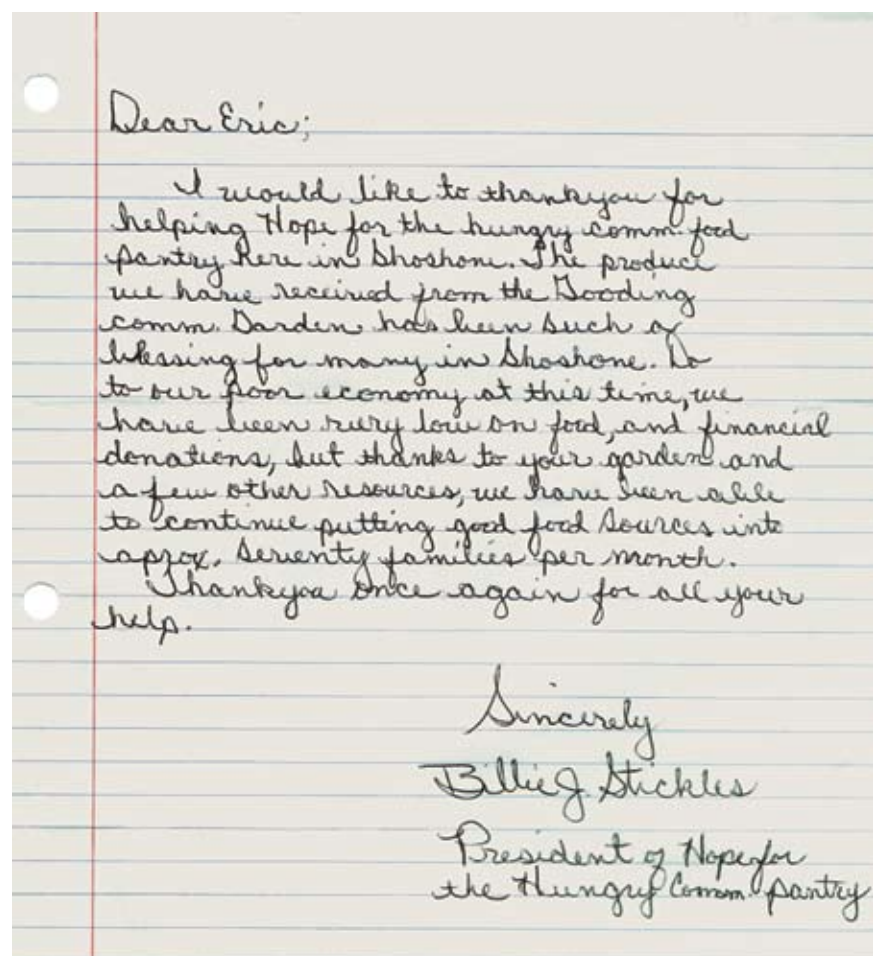 Dear Eric;
I would like to thankyou for
helping Hope for the hungry comm. food
pantry here in Shoshone. The produce
we have received from the Gooding
comm. Darden has been such a
blessing for many in Shoshone. Do
to our poor economy at this time, we
have been very low on food, and financial
donations, but thanks to your garden and
a few other resources, we have been able
to continue putting good food sources into
aprox. seventy families per month.
Thankyou once again for all your
help.
Sincerely
Billie J. Stickles
President of Hope for
the Hungry Comm. pantry